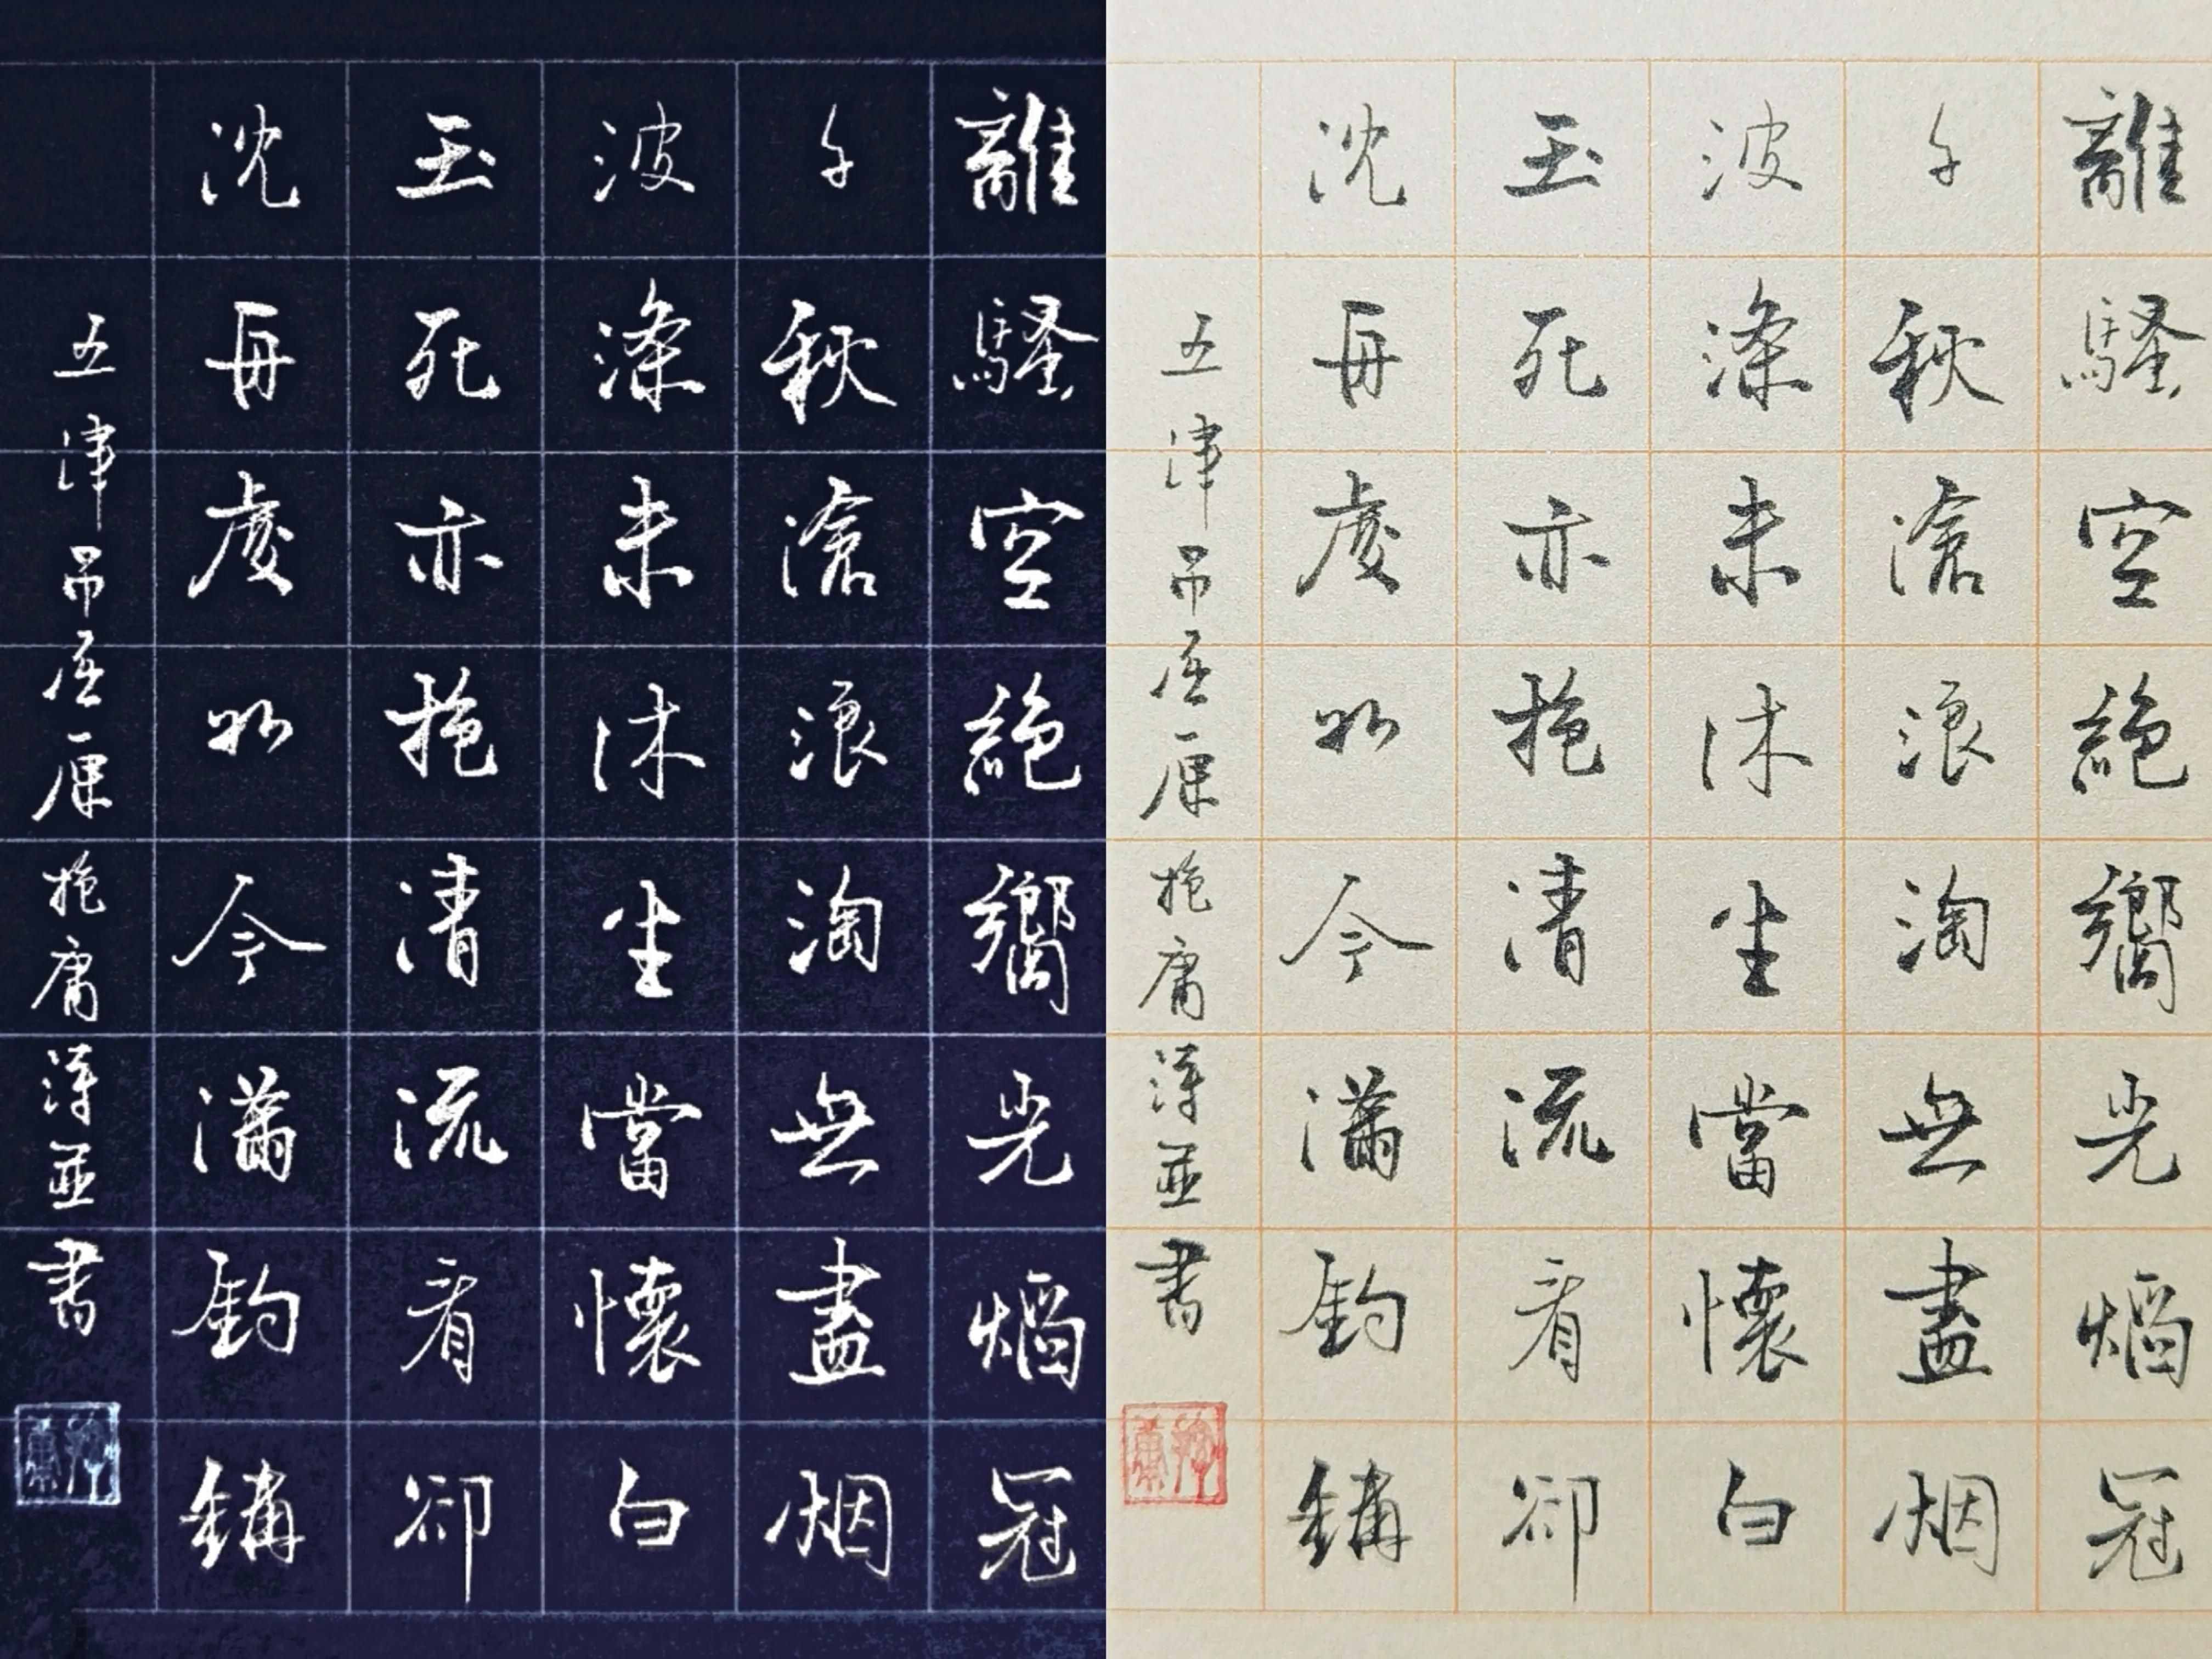 離騷空絕響光焰冠
千秋滄浪淘無盡烟
波滌未休生當懷白
玉死亦抱清流看卻
沈處如今滿釣
五律吊屈原抱庸並書
離騷空絕響光焰冠
千秋滄浪淘無盡烟
波滌未休生當懷白
玉死亦抱清流看卻
沈處如今滿釣
五律吊屈原抱庸並書